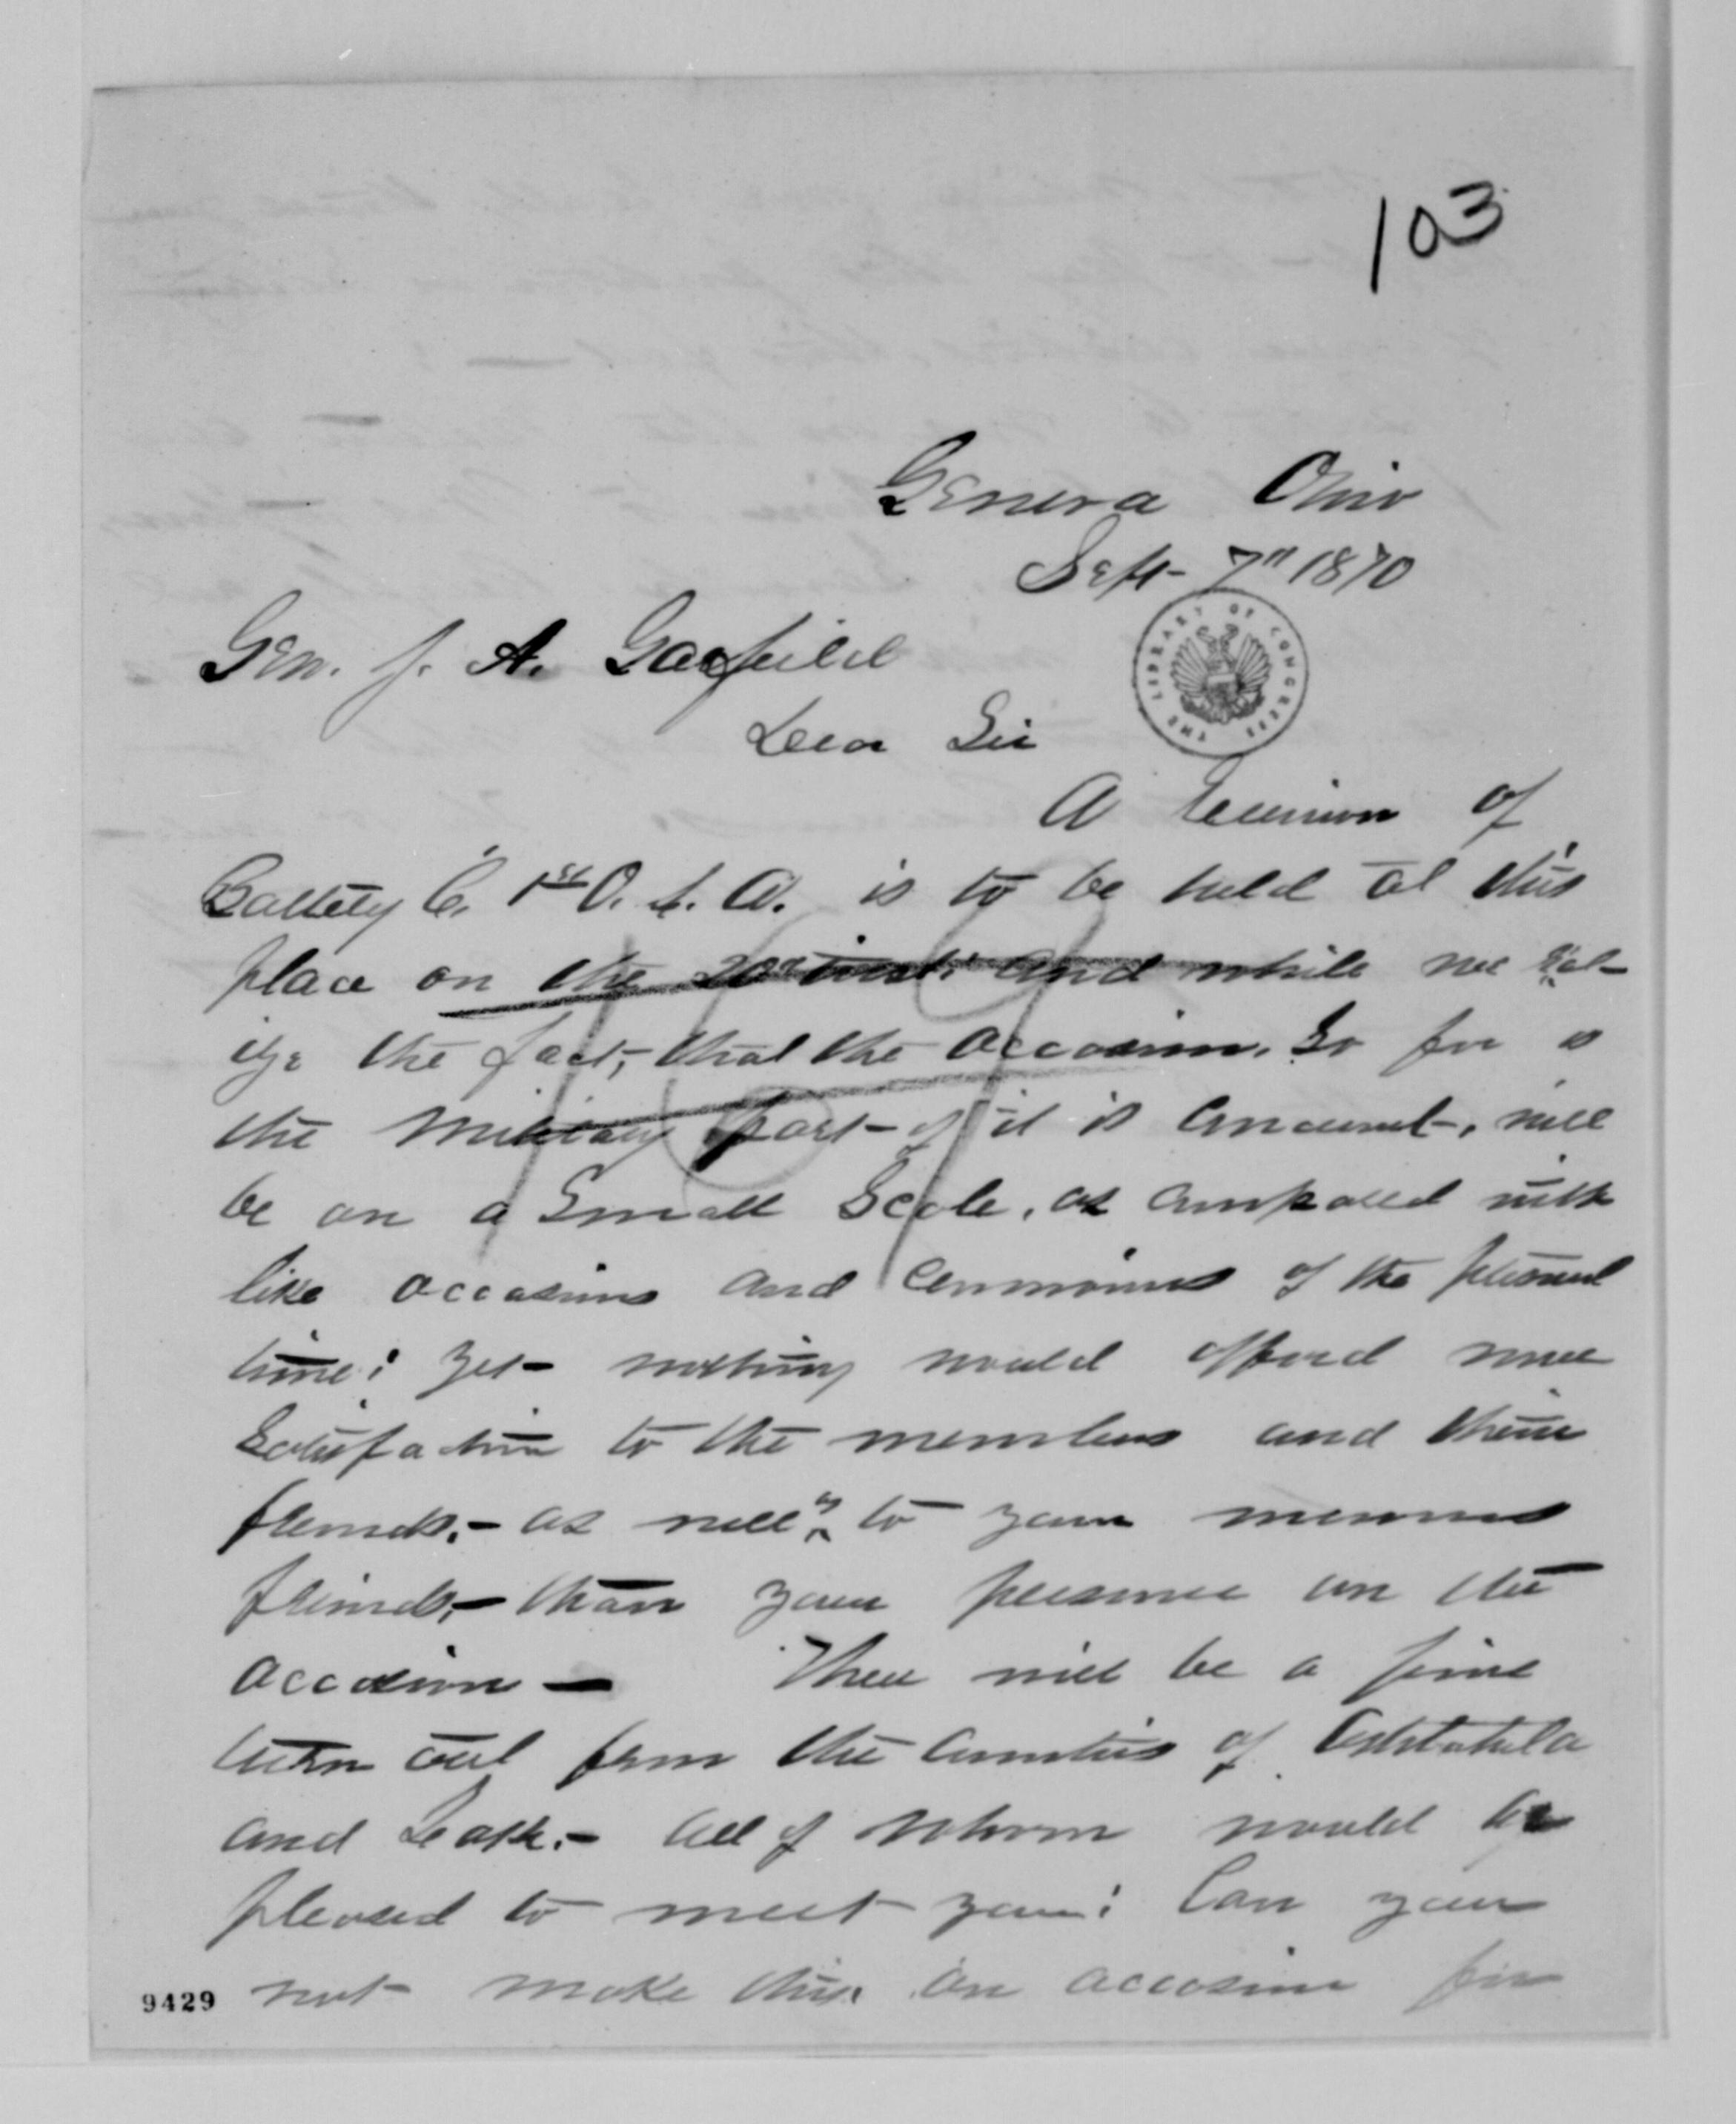 103
Geneva Ohio
Sept- 7" 1870
THE LIBRARY OF CONGRESS
Gen. J. A. Garfield
Dear Sir
A reunion of
Battery C. 1st O. L. A. is to be held at this
place on the inst. and while we real-
ize the fact, that the occasion, so far as
the military part of it is concerned, will
be on a small scale, as compared with
like occasions and ceremonies of the present
time; yet nothing would afford more
satisfaction to the members and their
friends, - as well as to your
friends, - than your presence on the
occasion - There will be a fine
turn out from the counties of Ashtabula
and Lake. - all of whom would be
pleased to meet you; Can you
not make this an occasion for
9429